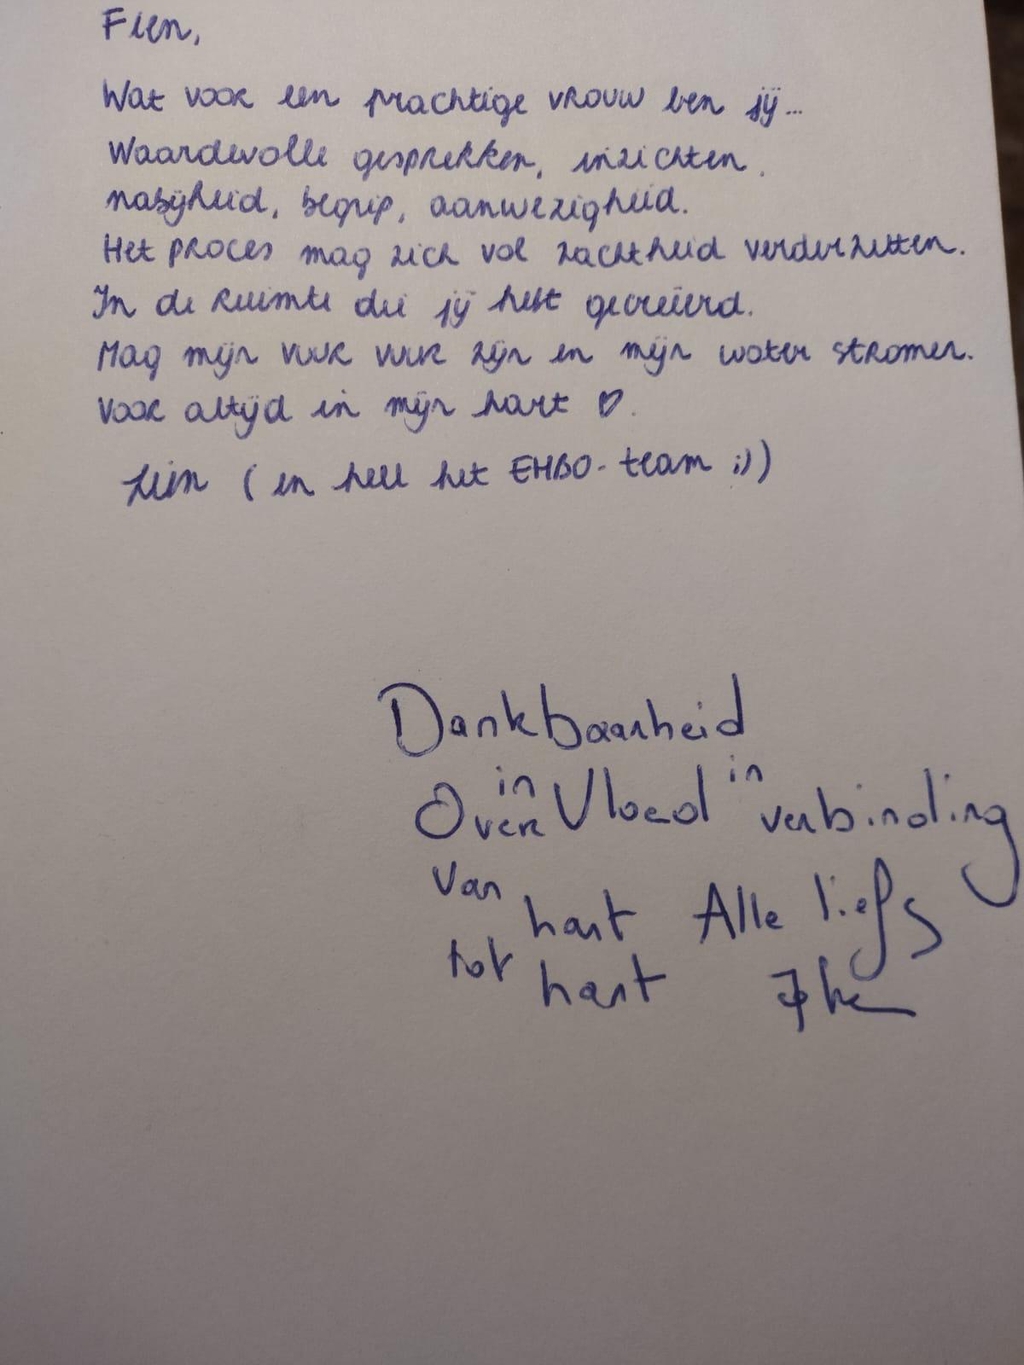 Fien,
Wat voor een prachtige vrouw ben jij...
Waardevolle gesprekken, inzichten,
nabijheid, begrip, aanwezigheid.
Het proces mag zich vol zachtheid verderzetten.
In de ruimte die jij hebt gecreëerd.
Mag mijn vuur vuur zijn en mijn water stromen.
Voor altijd in mijn hart ♡.
Lien (en heel het EHBO-team ;))
Dankbaarheid
in in
Over Vloed verbinding
van hart Alle liefs
tot hart